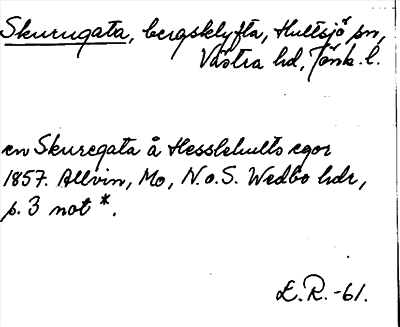 Skurugata, bergsklyfta, Hultsjö sn,
Västra hd, Jönk. l.
en Skuregata å Hesslehults egor
1857. Allvin, Mo, N.o.S. Wedbo hdr,
s. 3 not *.
E.R.-61.